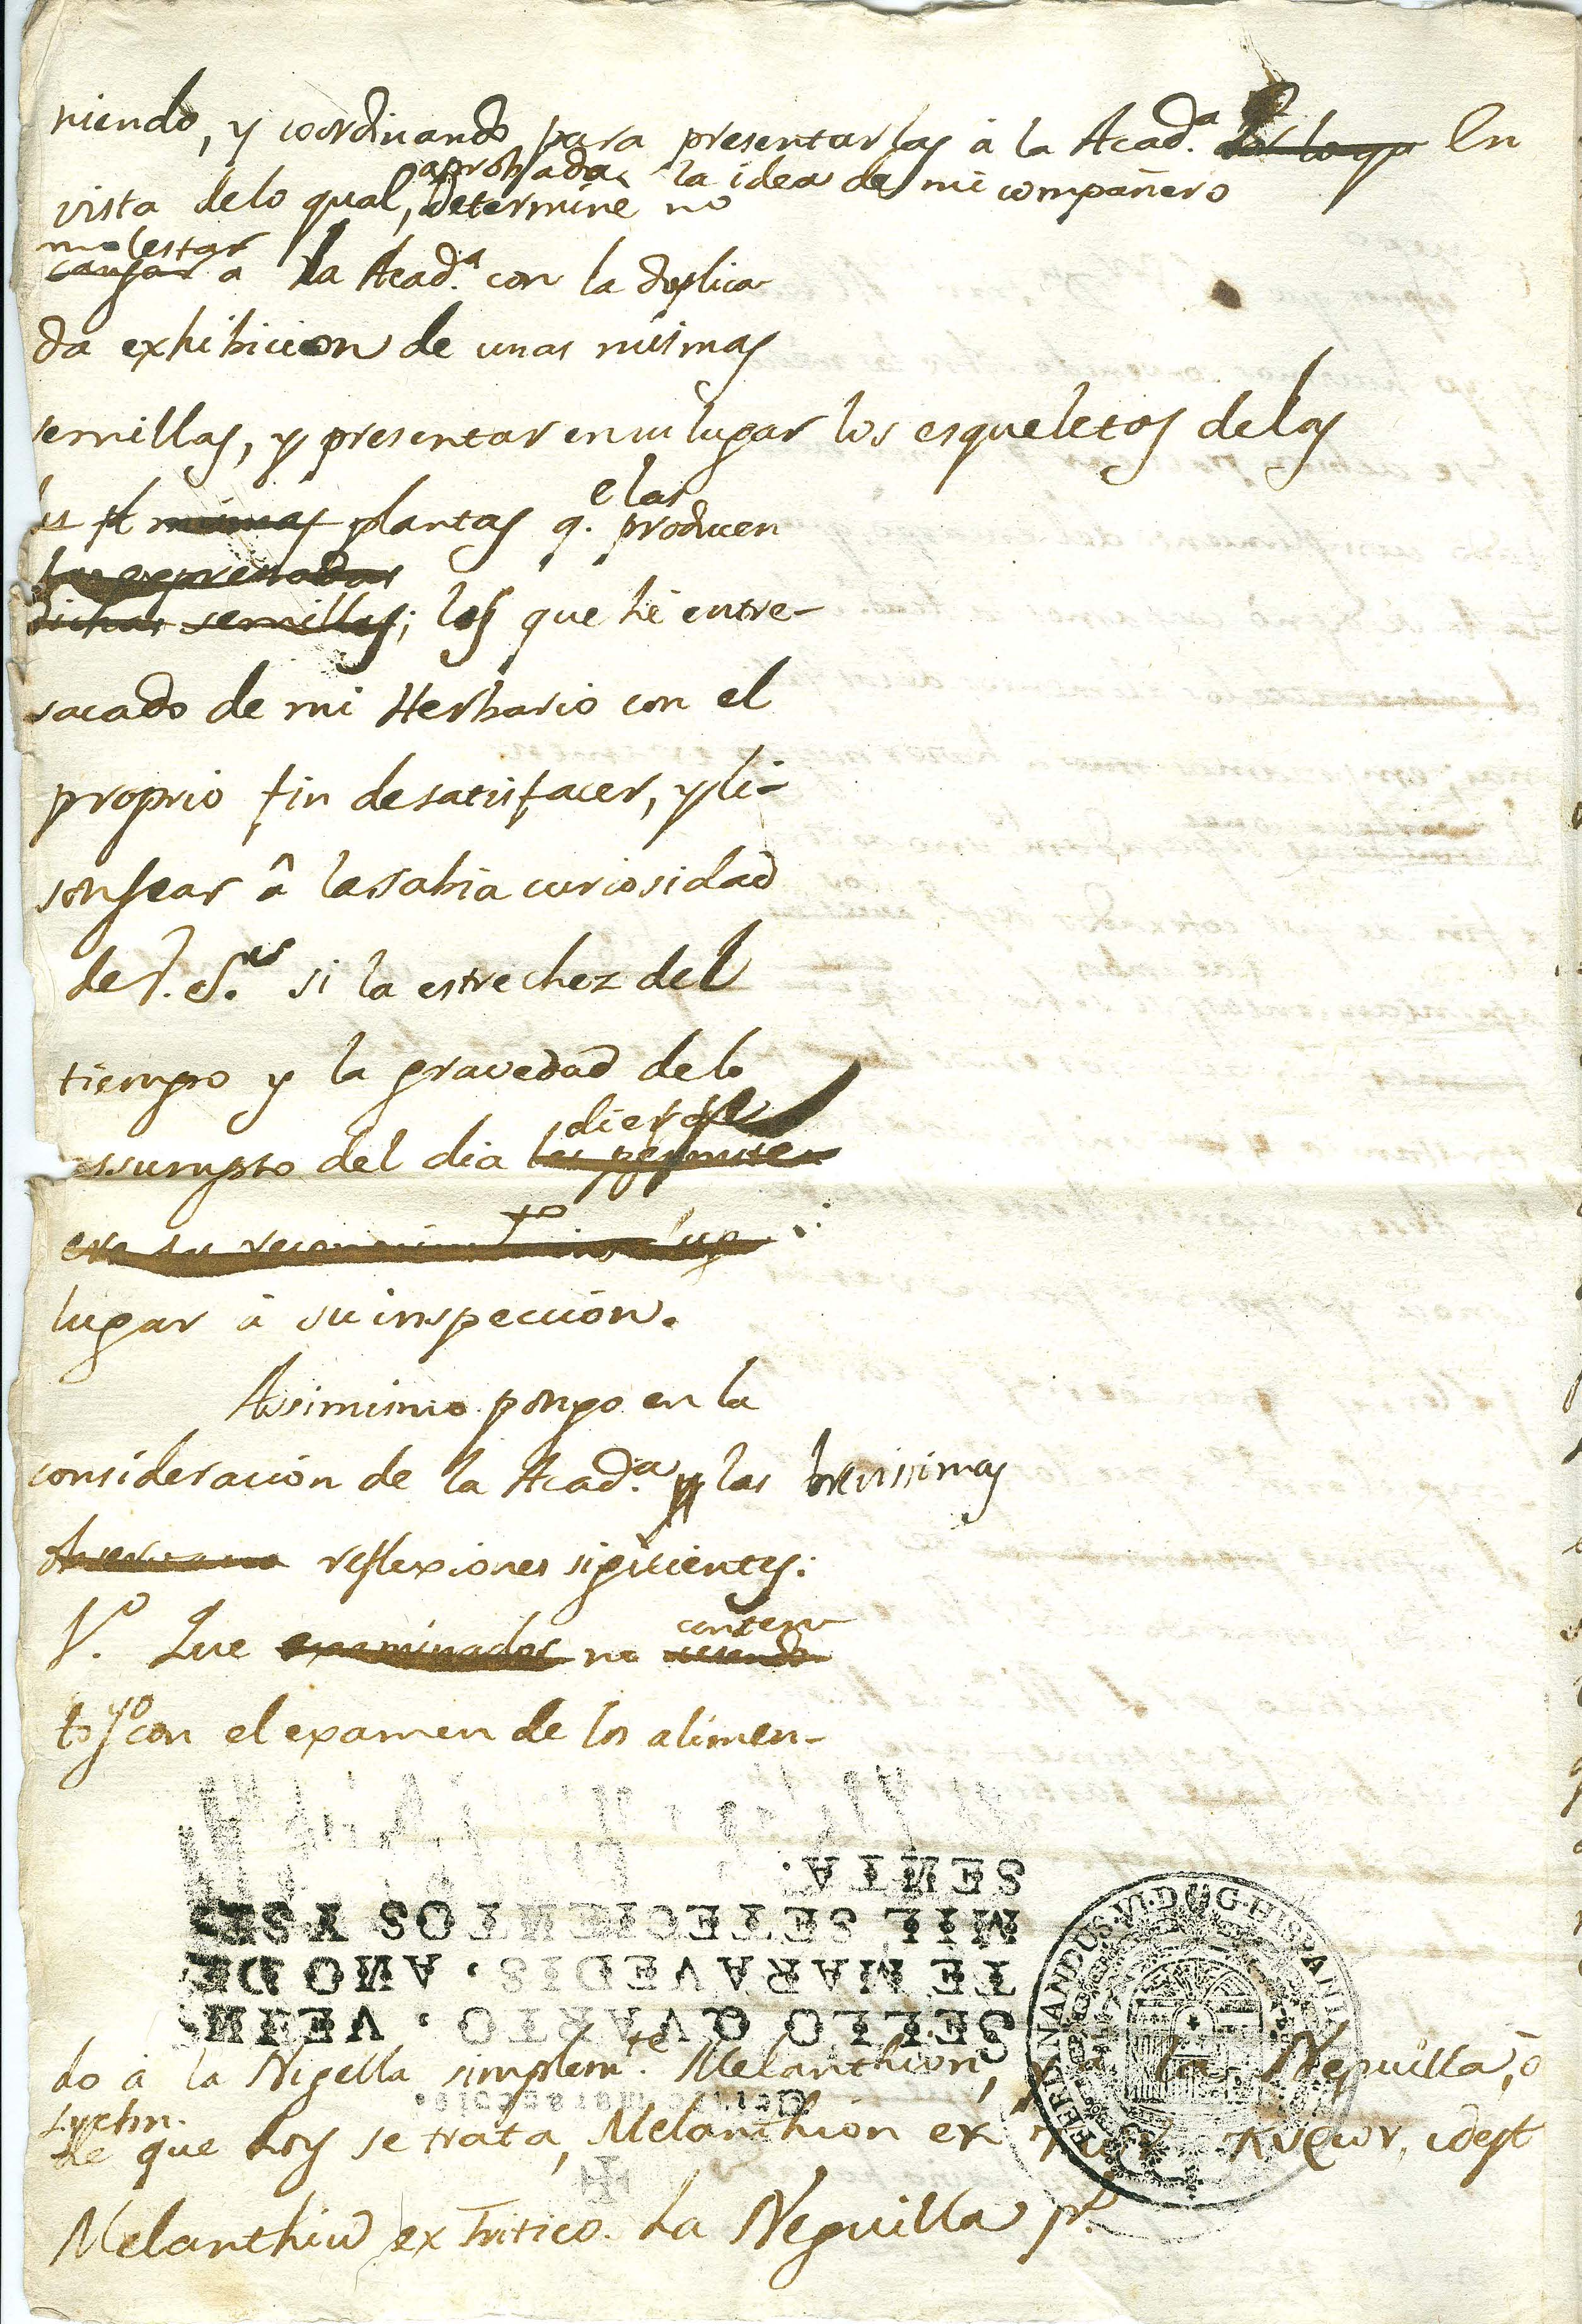 niendo, y coordinando para presentarlas à la Acad.ª Por lo qe En
vista delo qual, aprobada la idea de mi compañero
determinè no
molestar
causar a la Acad.ª con la duplica-
da exhibicion de unas mismas
semillas, y presentar en su lugar los esqueletos delas
mismas plantas q.e las producen
las expresadas
dichas semillas; los que hè entre-
sacado de mi Herbario con el
proprio fin de satisfacer, y li-
sonjear â la sabia curiosidad
de V. S.es si la estrechez del
tiempo y la gravedad de lo
diesse
assumpto del dia les permite
lugar à su inspeccion.
Assimismo pongo en la
consideracion de la Acad.ª las brevissimas
reflexiones siguientes:
1.º Que examinados no conten-
to yo con el examen de los alimen-
SELLO QVARTO, VEIN
TE MARAVEDIS, AÑO DE
MIL SETECIENTOS Y SE
SENTA.
FERDINANDUS·VI·D·G·HISPANIA
do à la Nigella simplem.te Melanthion, y à la Neguilla, ò
Lychn.
de que hoy se trata, Melanthion ex των πυρων, idest
Melanthiũ ex tritico. La Neguilla p.r